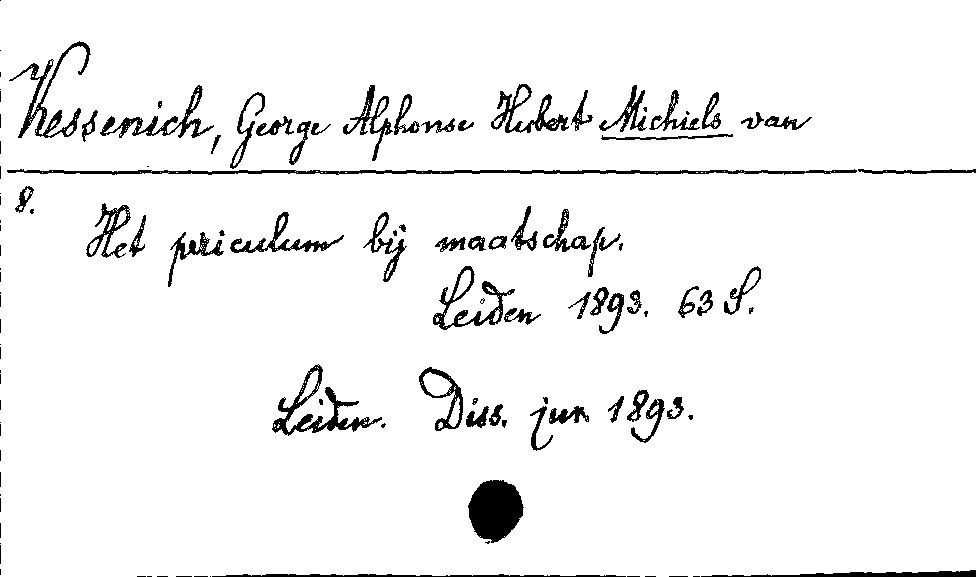 Kessenich, George Alphonse Hubert Michiels van
8.
Het periculum bij maatschap.
Leiden 1893. 63 S.
Leiden. Diss. jur. 1893.